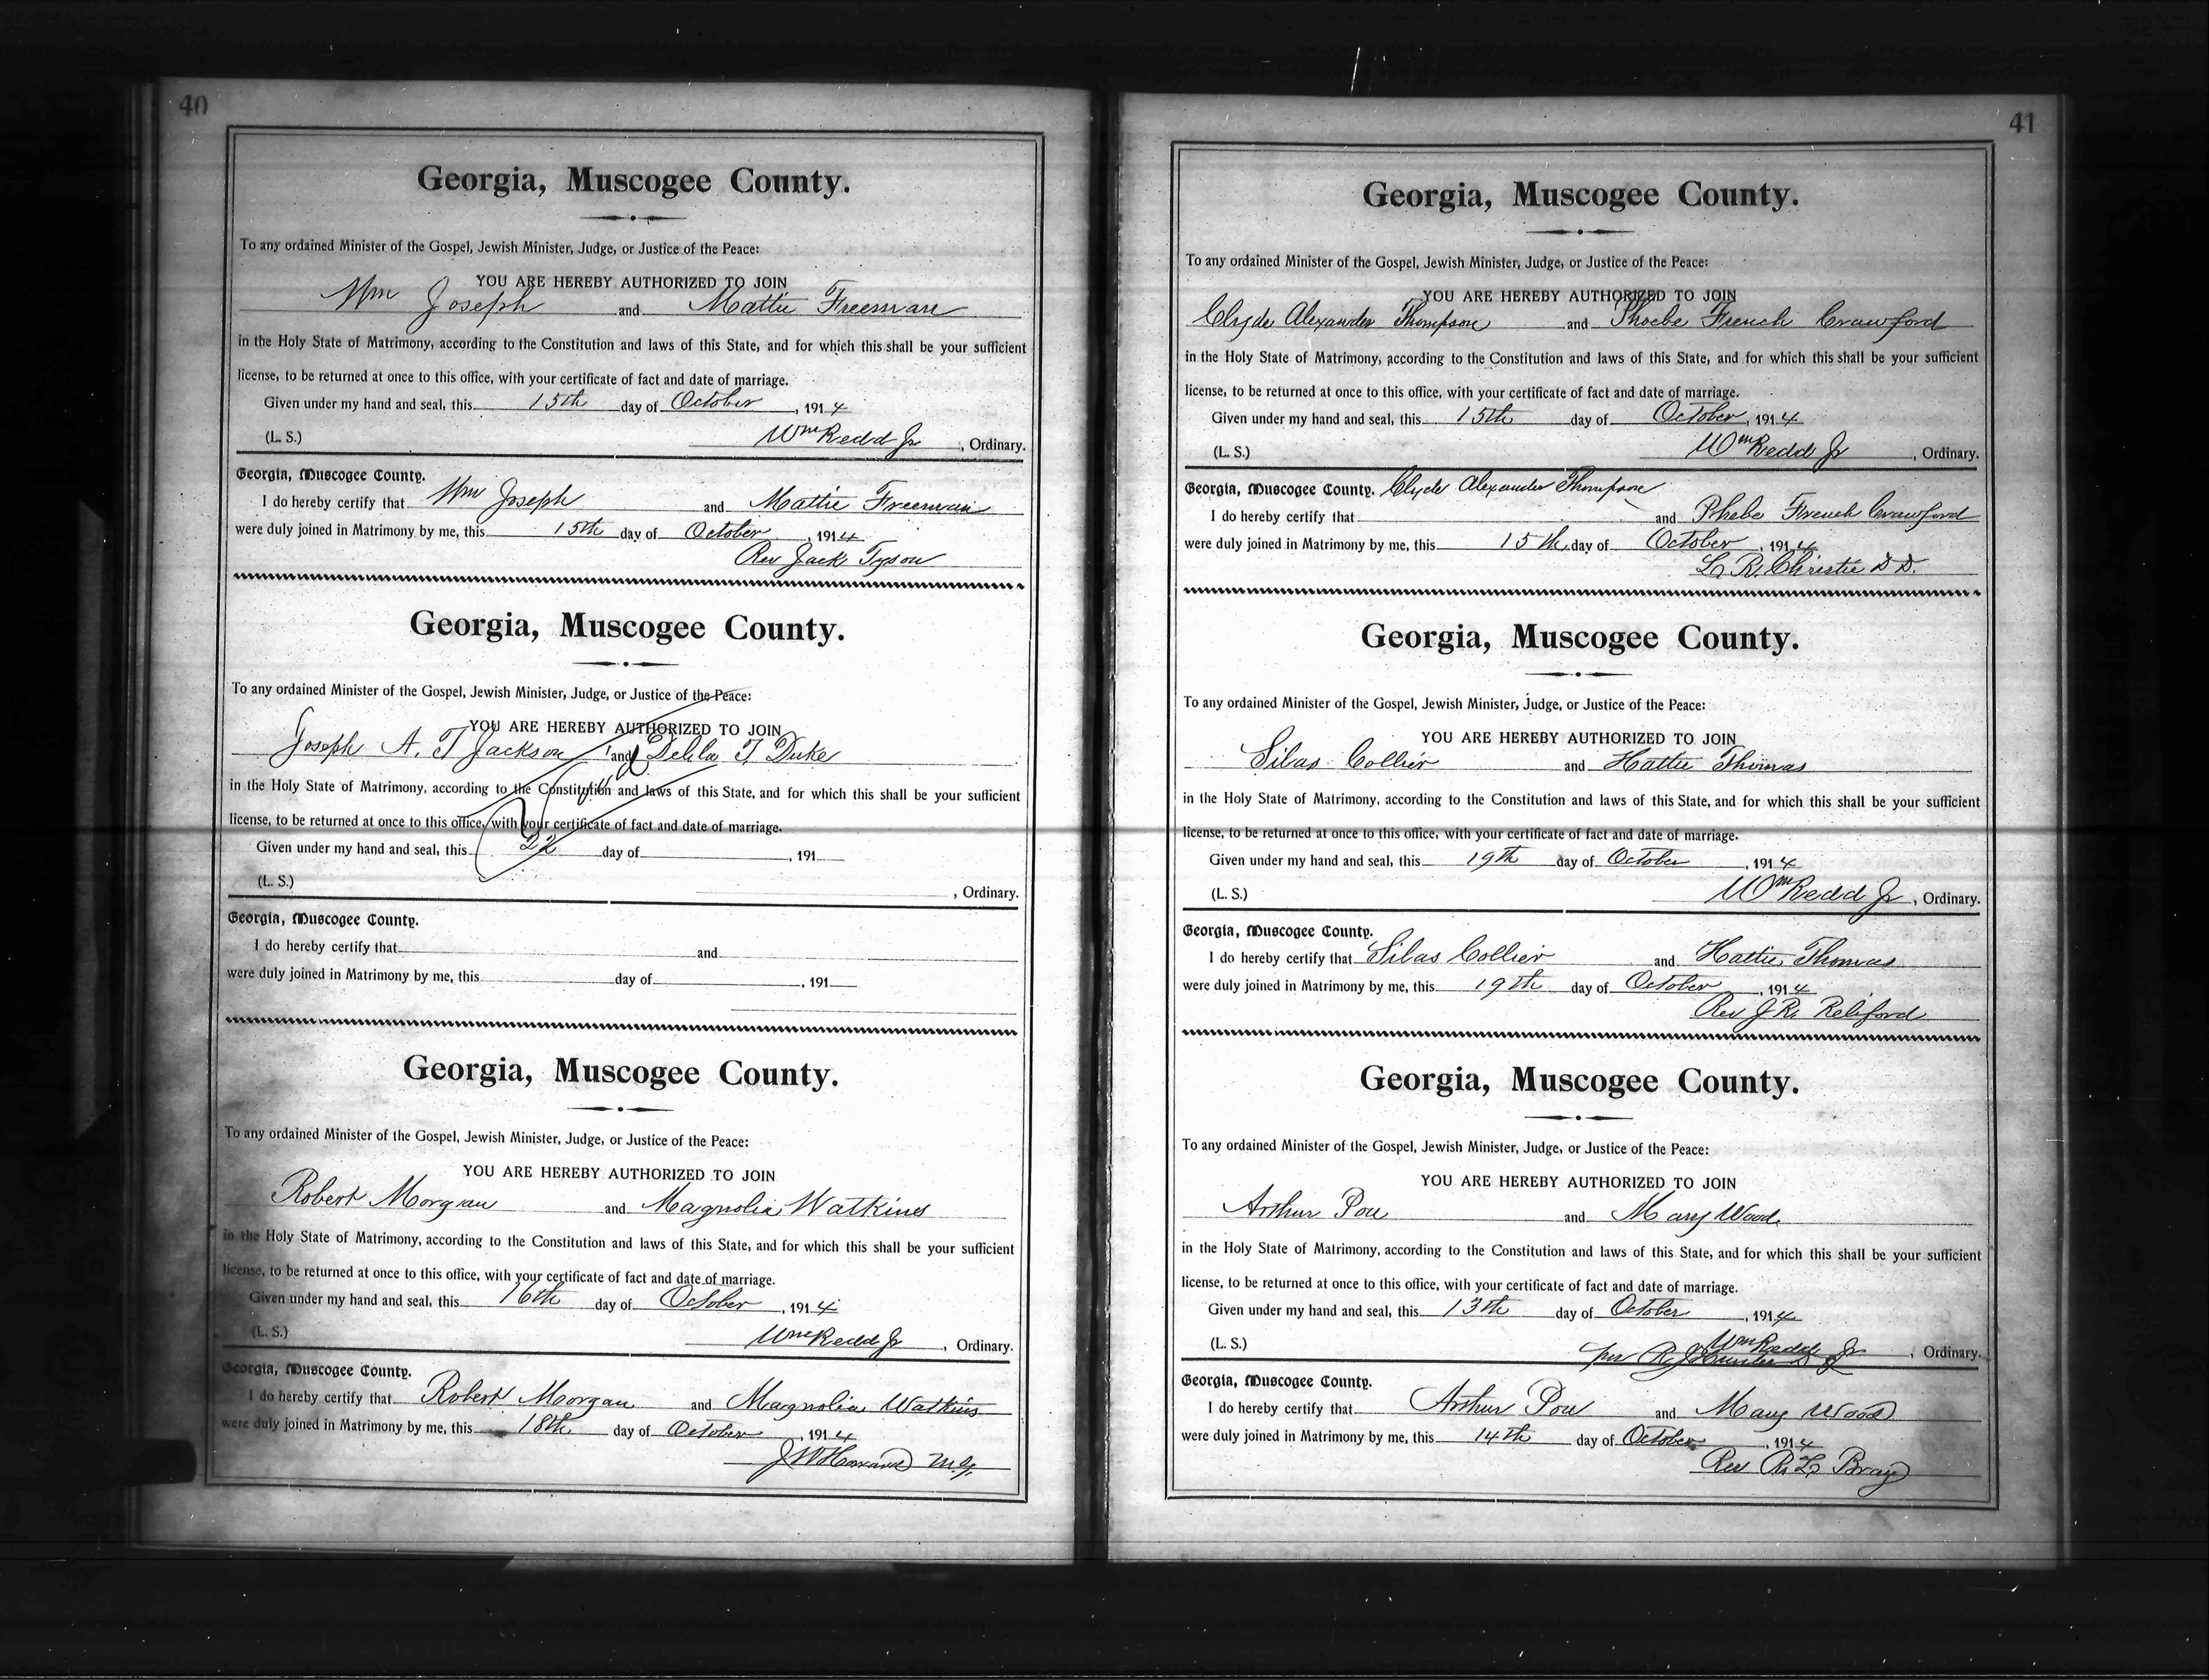 40
Georgia, Muscogee County.
To any ordained Minister of the Gospel, Jewish Minister, Judge, or Justice of the Peace:
YOU ARE HEREBY AUTHORIZED TO JOIN
Wm Joseph and Mattie Freeman
in the Holy State of Matrimony, according to the Constitution and laws of this State, and for which this shall be your sufficient
license, to be returned at once to this office, with your certificate of fact and date of marriage.
Given under my hand and seal, this 15th day of October, 1914
(L. S.) Wm Redd Jr, Ordinary.
Georgia, Muscogee County.
I do hereby certify that Wm Joseph and Mattie Freeman
were duly joined in Matrimony by me, this 15th day of October, 1914
Rev Jack Tyson
Georgia, Muscogee County.
To any ordained Minister of the Gospel, Jewish Minister, Judge, or Justice of the Peace:
YOU ARE HEREBY AUTHORIZED TO JOIN
Joseph A. T Jackson and Delila T. Duke
in the Holy State of Matrimony, according to the Constitution and laws of this State, and for which this shall be your sufficient
license, to be returned at once to this office, with your certificate of fact and date of marriage.
Given under my hand and seal, this day of , 191
(L. S.) , Ordinary.
Georgia, Muscogee County.
I do hereby certify that and
were duly joined in Matrimony by me, this day of , 191
Georgia, Muscogee County.
To any ordained Minister of the Gospel, Jewish Minister, Judge, or Justice of the Peace:
YOU ARE HEREBY AUTHORIZED TO JOIN
Robert Morgan and Magnolia Watkins
in the Holy State of Matrimony, according to the Constitution and laws of this State, and for which this shall be your sufficient
license, to be returned at once to this office, with your certificate of fact and date of marriage.
Given under my hand and seal, this 16th day of October, 1914
(L. S.) Wm Redd Jr, Ordinary.
Georgia, Muscogee County.
I do hereby certify that Robert Morgan and Magnolia Watkins
were duly joined in Matrimony by me, this 18th day of October, 1914
J W Howard M.G.
41
Georgia, Muscogee County.
To any ordained Minister of the Gospel, Jewish Minister, Judge, or Justice of the Peace:
YOU ARE HEREBY AUTHORIZED TO JOIN
Clyde Alexander Thompson and Phoebe French Crawford
in the Holy State of Matrimony, according to the Constitution and laws of this State, and for which this shall be your sufficient
license, to be returned at once to this office, with your certificate of fact and date of marriage.
Given under my hand and seal, this 15th day of October, 1914
(L. S.) Wm Redd Jr, Ordinary.
Georgia, Muscogee County. Clyde Alexander Thompson
I do hereby certify that and Phebe French Crawford
were duly joined in Matrimony by me, this 15th day of October, 1914
L. R. Christie D D.
Georgia, Muscogee County.
To any ordained Minister of the Gospel, Jewish Minister, Judge, or Justice of the Peace:
YOU ARE HEREBY AUTHORIZED TO JOIN
Silas Collier and Hattie Thomas
in the Holy State of Matrimony, according to the Constitution and laws of this State, and for which this shall be your sufficient
license, to be returned at once to this office, with your certificate of fact and date of marriage.
Given under my hand and seal, this 19th day of October, 1914
(L. S.) Wm Redd Jr, Ordinary.
Georgia, Muscogee County.
I do hereby certify that Silas Collier and Hattie Thomas
were duly joined in Matrimony by me, this 19th day of October, 1914
Rev J. R. Reliford
Georgia, Muscogee County.
To any ordained Minister of the Gospel, Jewish Minister, Judge, or Justice of the Peace:
YOU ARE HEREBY AUTHORIZED TO JOIN
Arthur Pou and Mary Wood
in the Holy State of Matrimony, according to the Constitution and laws of this State, and for which this shall be your sufficient
license, to be returned at once to this office, with your certificate of fact and date of marriage.
Given under my hand and seal, this 13th day of October, 1914
Wm Redd Jr
(L. S.) per R. J. Hunter, Ordinary.
Georgia, Muscogee County.
I do hereby certify that Arthur Pou and Mary Wood
were duly joined in Matrimony by me, this 14th day of October, 1914
Rev R. L. Bray